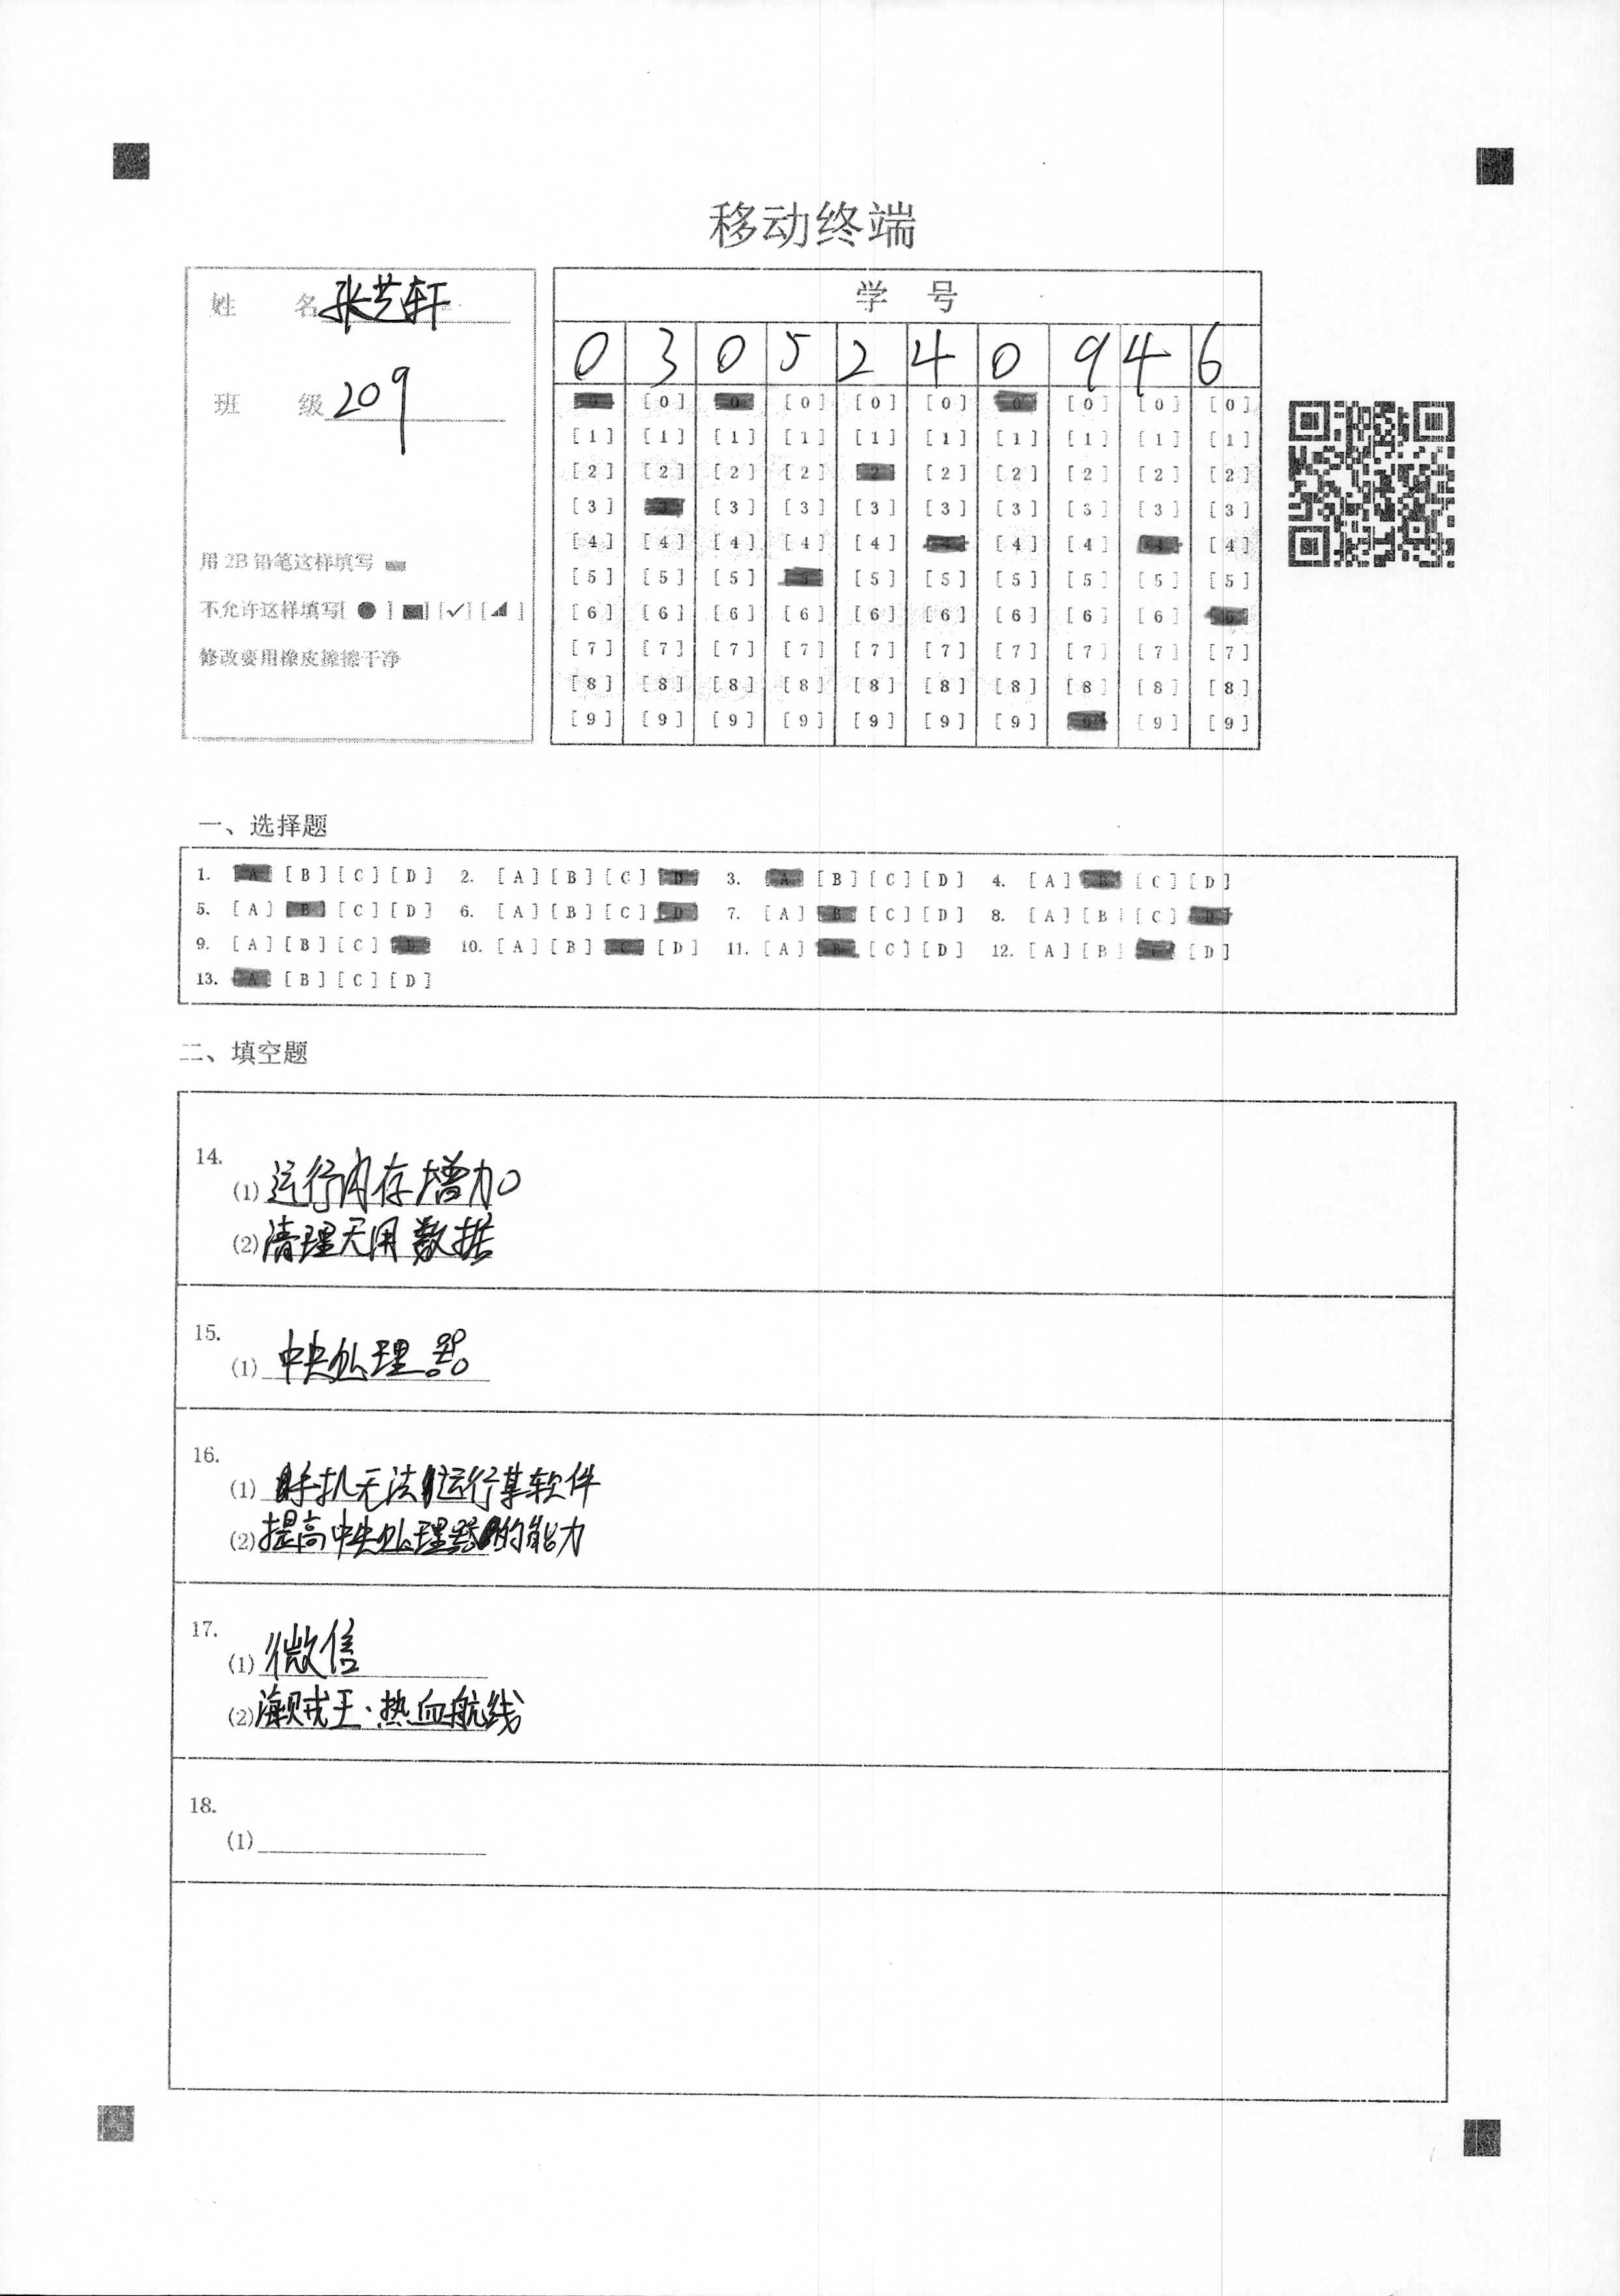 移动终端
姓 名 张艺轩
班 级 209
用 2B 铅笔这样填写
不允许这样填写[ ● ] [■] [✓] [◢ ]
修改要用橡皮擦擦干净
学 号
0 3 0 5 2 4 0 9 4 6
[0] [0] [0] [0] [0] [0] [0] [0] [0] [0]
[1] [1] [1] [1] [1] [1] [1] [1] [1] [1]
[2] [2] [2] [2] [2] [2] [2] [2] [2] [2]
[3] [3] [3] [3] [3] [3] [3] [3] [3] [3]
[4] [4] [4] [4] [4] [4] [4] [4] [4] [4]
[5] [5] [5] [5] [5] [5] [5] [5] [5] [5]
[6] [6] [6] [6] [6] [6] [6] [6] [6] [6]
[7] [7] [7] [7] [7] [7] [7] [7] [7] [7]
[8] [8] [8] [8] [8] [8] [8] [8] [8] [8]
[9] [9] [9] [9] [9] [9] [9] [9] [9] [9]
一、选择题
1. [A] [B] [C] [D] 2. [A] [B] [C] [D] 3. [A] [B] [C] [D] 4. [A] [B] [C] [D]
5. [A] [B] [C] [D] 6. [A] [B] [C] [D] 7. [A] [B] [C] [D] 8. [A] [B] [C] [D]
9. [A] [B] [C] [D] 10. [A] [B] [C] [D] 11. [A] [B] [C] [D] 12. [A] [B] [C] [D]
13. [A] [B] [C] [D]
二、填空题
14.
(1) 运行内存增加
(2) 清理无用数据
15.
(1) 中央处理器
16.
(1) 手机无法运行某软件
(2) 提高中央处理器的能力
17.
(1) 微信
(2) 海贼王·热血航线
18.
(1)